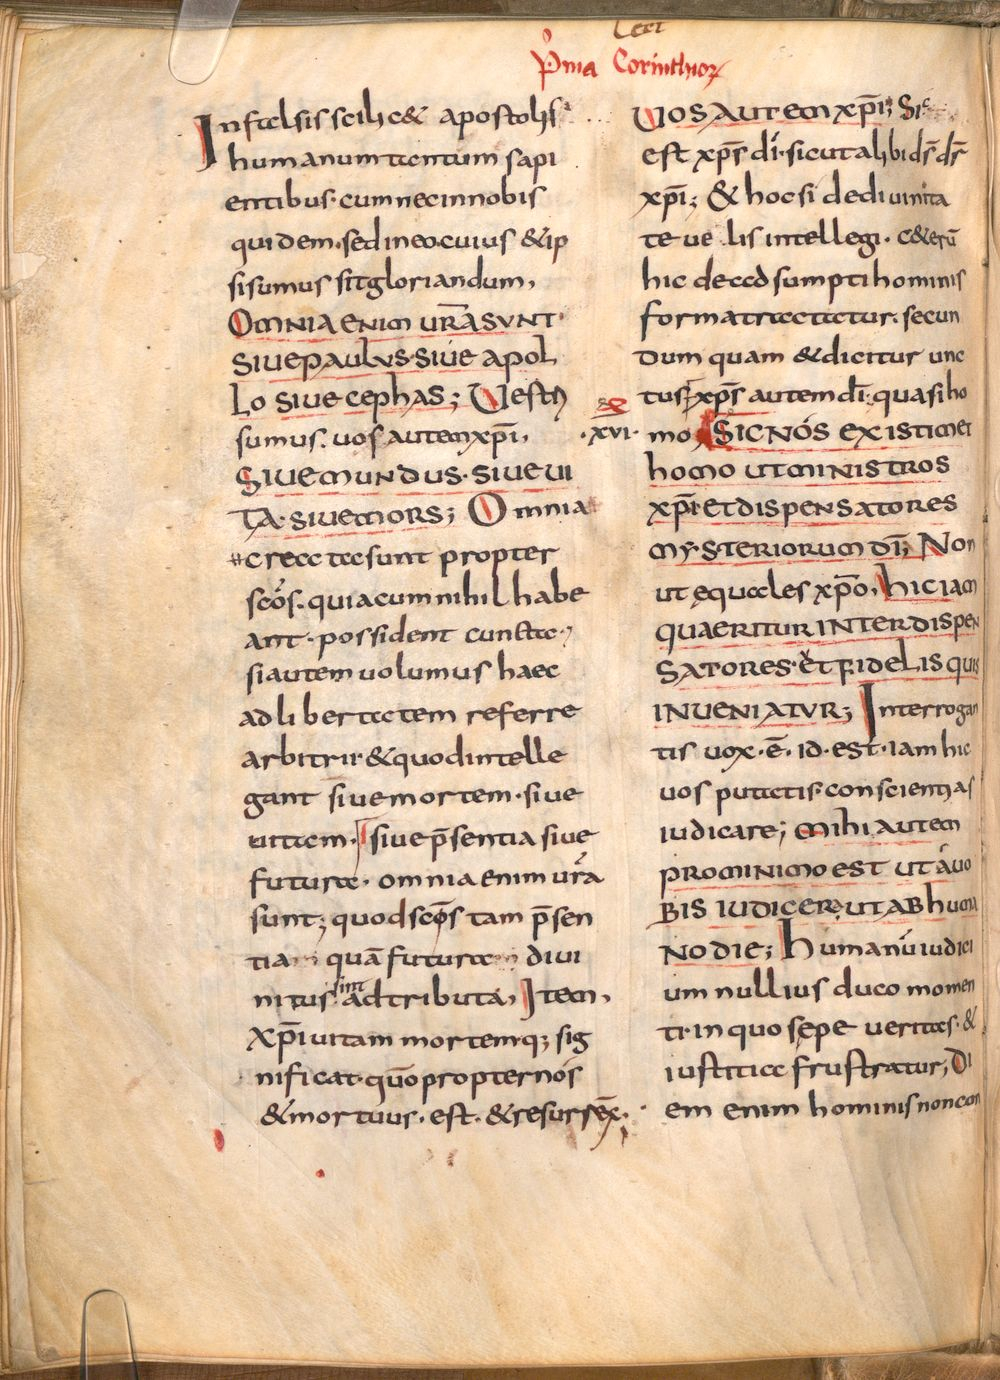 P̊ma Corinthioꝝ
In falsis scilic& apostolis
humanum tantum sapi
entibus· cum nec in nobis
quidem· sed in eo· cuius & ip
si sumus sit gloriandum,
OMNIA ENIM UR̄A SVNT·
SIUE PAULVS· SIUE APOL
LO SIUE CEPHAS; Uestri
sumus· uos autem xp̄i,
SIUE MUNDUS· SIUE UI
TA· SIUE MORS; Omnia
creata sunt propter
sc̄os· quia cum nihil habe
ant· possident cuncta,
si autem uolumus haec
ad libertatem referre
arbitrii· & quod intelle
gant siue mortem· siue
uitam· siue p̄sentia siue
futura· omnia enim ur̄a
sunt; quod sc̄os tam p̄sen
tia quā futura diui
nitus sint adtributa, Item,
xp̄i uitam mortemq; sig
nificat· quō propter nos
& mortuus· est· & resurrex̄·
UOS AUTEM XP̄I; Si
est xp̄s dī· sicut alibi dr̄ ds̄
xp̄i; & hoc si de diuinita
te uelis intellegi· c&erū
hic de adsumpti hominis
forma tractatur· secun
dum quam & dicitur unc
tus xp̄s autem dī· quasi ho
·XVI· mo, SIC NOS EXISTIMET
HOMO UT MINISTROS
XP̄I ET DISPENSATORES
MYSTERIORUM DI̅; Non
ut ęquales xp̄o, HIC IAM
QUAERITUR INTER DISPEN
SATORES· ET FIDELIS QUIS
INUENIATVR; Interrogan
tis uox· ē· id· est· iam hic
uos putatis conscientias
iudicare; MIHI AUTEM
PRO MINIMO EST UT A UO
BIS IUDICER, UT AB HUMA
NO DIE; Humanū iudici
um nullius duco momen
ti· in quo sępe ueritas· &
iustitia frustratur, Di
em enim hominis non con